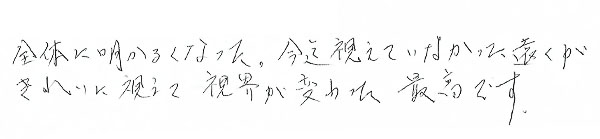 全体に明かるくなった。今迄視えていなかった遠くが
きれいに視えて 視界が変わった 最高です.